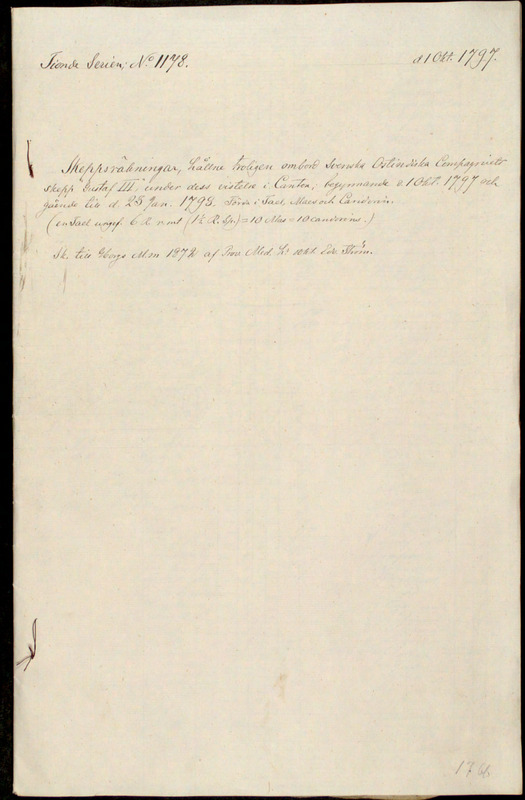 Tionde Serien, No 1178.
d 1 Okt. 1797.
Skeppsräkningar, hållne troligen ombord Svenska Ostindiska Compagniets
skepp Gustaf III, under dess vistelse i Canton, begynnande d. 1 Okt. 1797 och
gående till d. 25 Jan. 1798. Förda i Tael, Mas och Candorin.
(en Tael ungef. 6 R rmt (1½ R. Sp.) = 10 Mas = 10 candorins.)
Sk. till Gborgs Mm 1872 af Prov. Med. Edv. Ström.